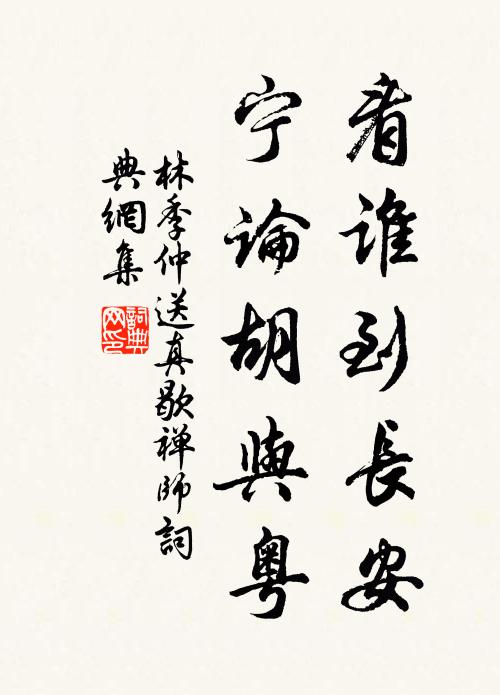 看誰到長安
宁論胡與粵
林季仲送真歇禅師詞
典網集
詞典
网印